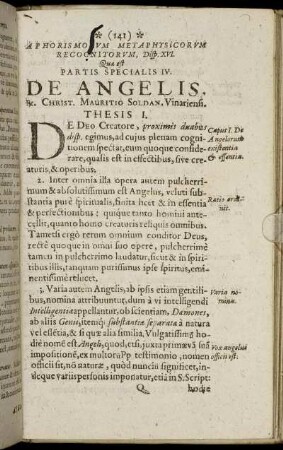 (141)
APHORISMORVM METAPHYSICORVM
RECOGNITORVM, Disp. XVI.
Quæ est
PARTIS SPECIALIS IV.
DE ANGELIS.
R. CHRIST. MAURITIO SOLDAN, Vinariensi.
THESIS I.
DE DEO Creatore, proximis duabus
disp. egimus, ad cujus plenam cogni-
tionem spectat, eum quoque conside-
rare, qualis est in effectibus, sive crea-
turis, & operibus.
Caput I. De
Angelorum
existentia
& essentia.
2. Inter omnia illa opera autem pulcherri-
mum & absolutissimum est Angelus, veluti sub-
stantia purè spiritualis, finita licet & in essentia
& perfectionibus: quique tanto homini ante-
cellit, quanto homo creaturis reliquis omnibus.
Tametsi ergò rerum omnium conditor Deus,
rectè quoque in omni suo opere, pulcherrimè
tamen in pulcherrimo laudatur, sicut & in spiri-
tibus illis, tanquam purissimus ipse spiritus, emi-
nentissimè relucet.
Ratio ordi-
nis.
3. Varia autem Angelis, ab ipsis etiam genti-
libus, nomina attribuuntur, dum à vi intelligendi
Intelligentiæ appellantur, ob scientiam, Dæmones,
ab aliis Genii, itemq; substantiæ separatæ à natura
vel essẽtia, & si quæ alia similia. Vulgatissimũ ho-
diè nomẽ est Angeli, quod, etsi, juxta primævã suã
impositionẽ, ex multorũ Pp testimonio, nomen
officii sit, nõ naturæ, quod nunciũ significet, in-
deque variis personis imponatur, etiã in S. Script:
Varia no-
mina.
Vox angelus
officii est.
Q
hodie